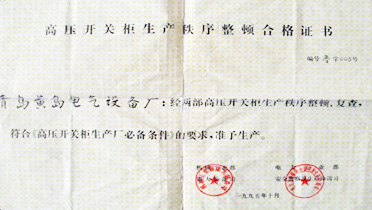 高压开关柜生产秩序整顿合格证书
编号 鲁字
青岛黄岛电气设备厂：经两部高压开关柜生产秩序整顿、复查，
符合《高压开关柜生产厂必备条件》的要求，准予生产。
部 电 部
一九九五年十月